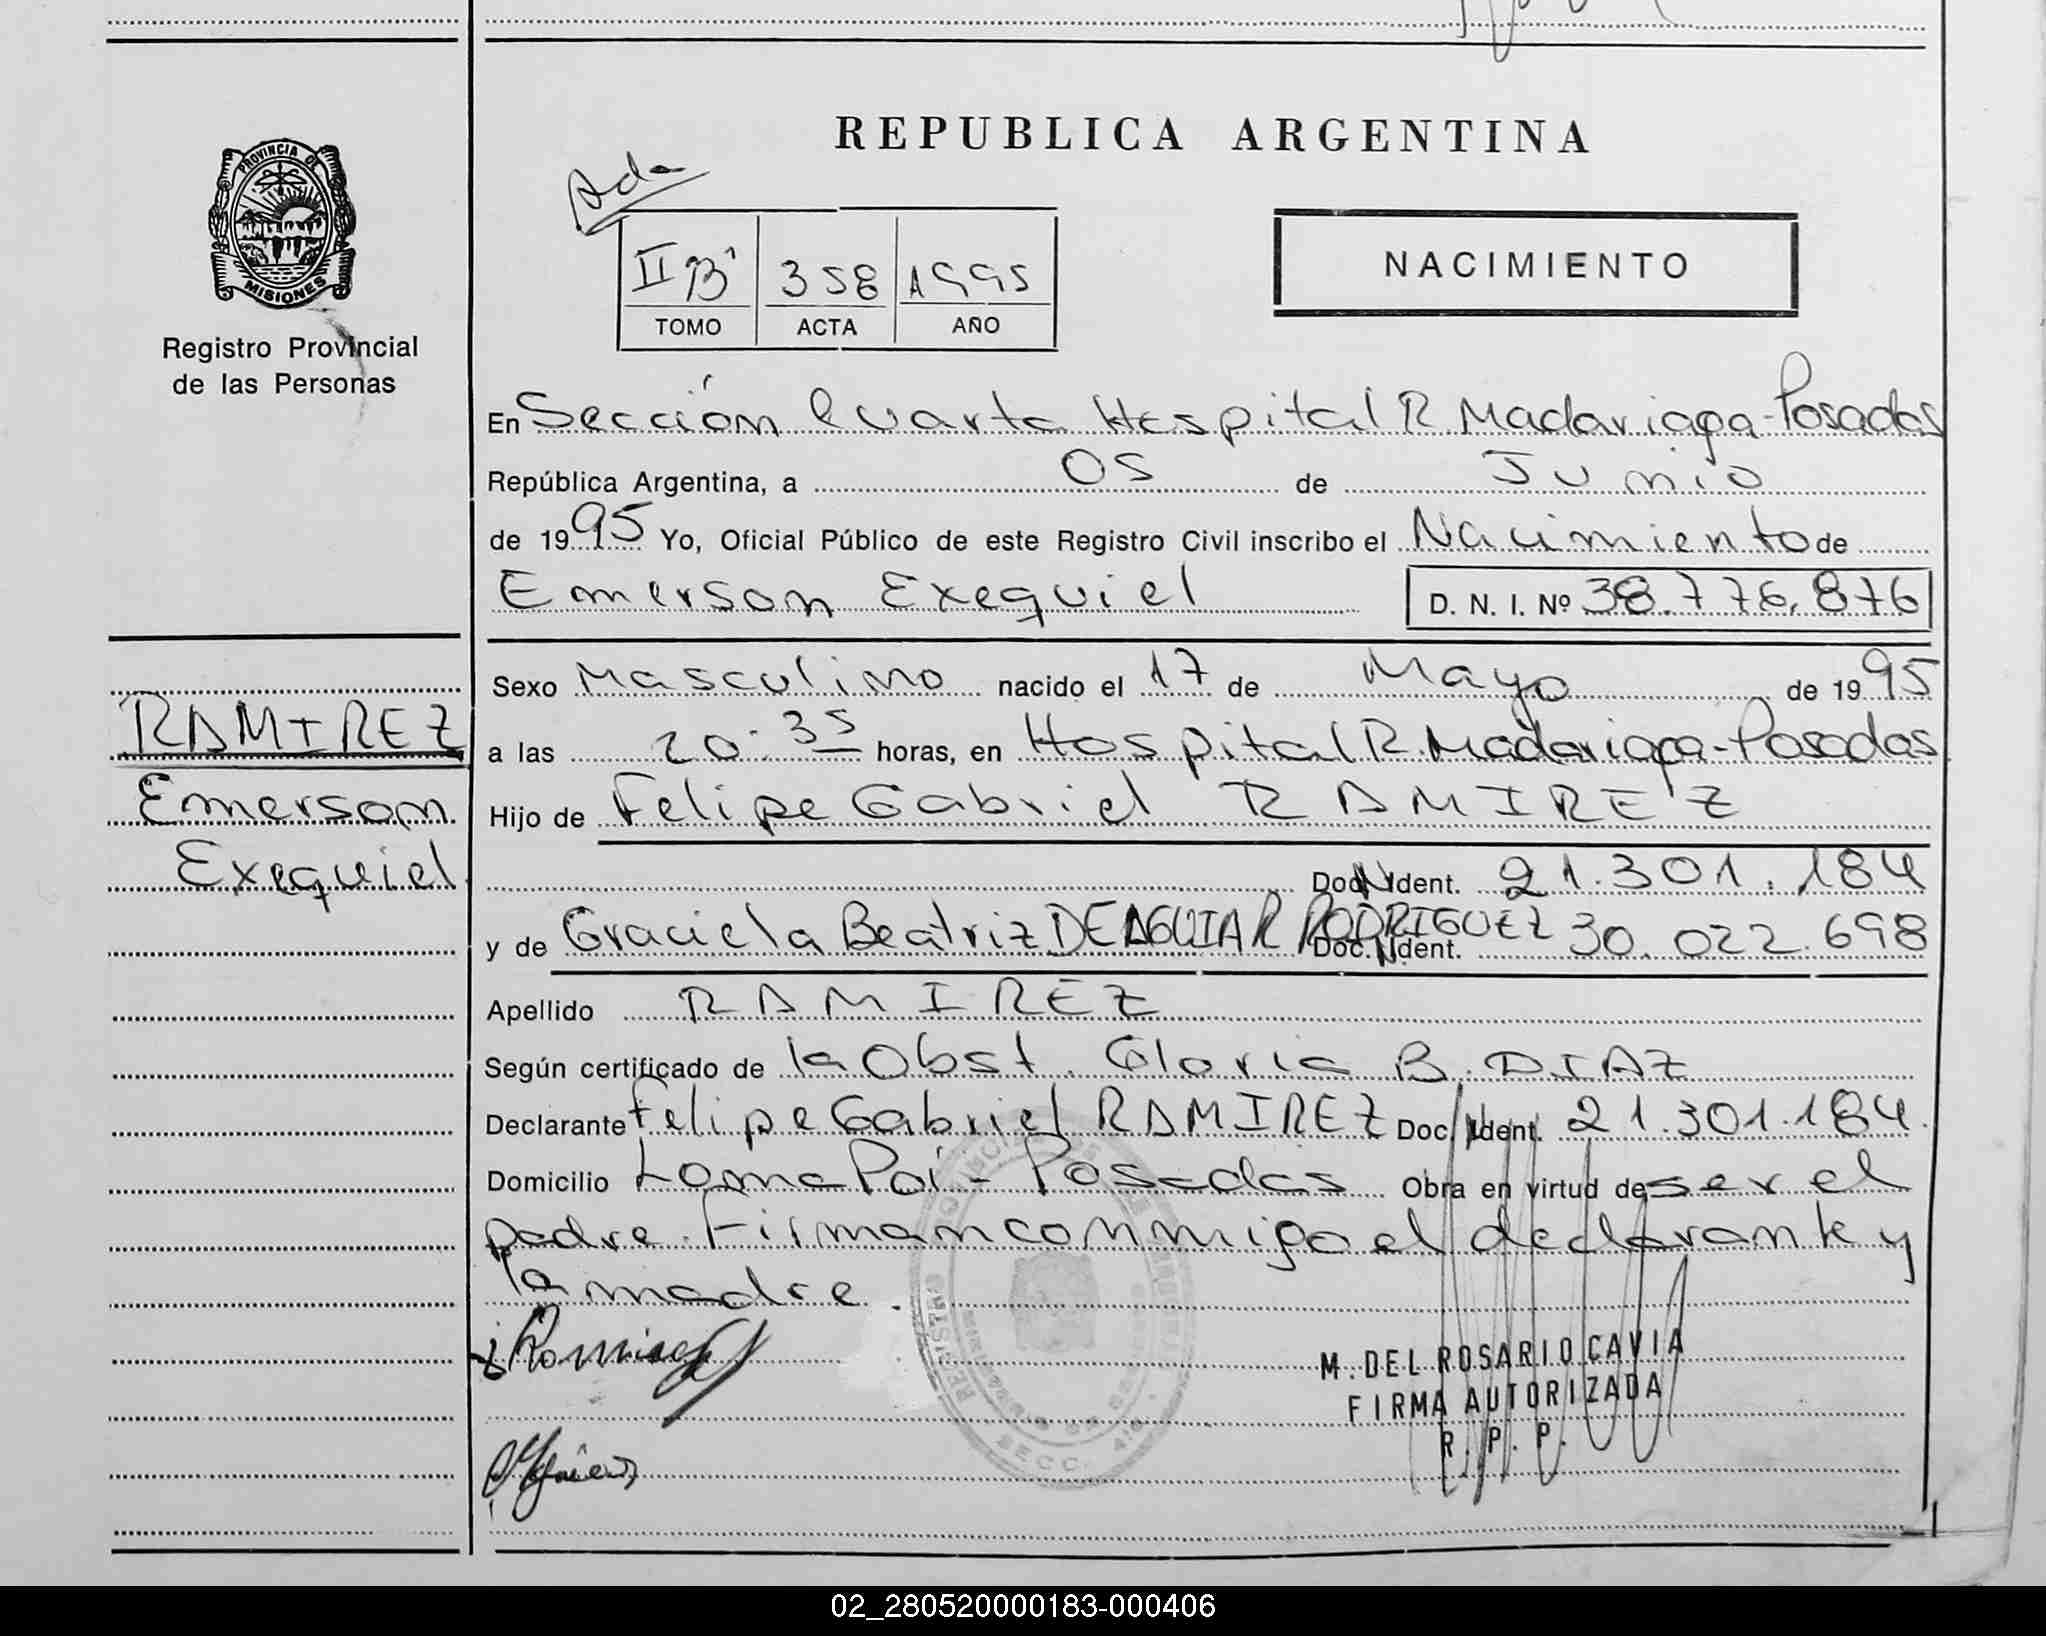 REPUBLICA ARGENTINA
PROVINCIA DE
MISIONES
Registro Provincial
de las Personas
II B' 358 A 1995
TOMO ACTA AÑO
NACIMIENTO
En Sección Cuarta Hospital R. Madariaga-Posadas
República Argentina, a 05 de Junio
de 1995 Yo, Oficial Público de este Registro Civil inscribo el Nacimiento de
Emerson Exequiel D. N. I. Nº 38.776.876
Sexo Masculino nacido el 17 de Mayo de 1995
RAMIREZ
Emerson
Exequiel
a las 20:35 horas, en Hospital R. Madariaga-Posadas
Hijo de Felipe Gabriel RAMIREZ
Doc. N Ident. 21.301.184
y de Graciela Beatriz DE AGUIAR RODRIGUEZ Doc. N Ident. 30.022.698
Apellido RAMIREZ
Según certificado de la Obst. Gloria B. DIAZ
Declarante Felipe Gabriel RAMIREZ Doc. Ident. 21.301.184.
Domicilio Loma Poi - Posadas Obra en virtud de ser el
padre. Firman conmigo el declarante y
la madre.
Ramirez
M. DEL ROSARIO CAVIA
FIRMA AUTORIZADA
R. P. P.
REGISTRO PROVINCIAL DE
SECC. 4ta.
02_280520000183-000406